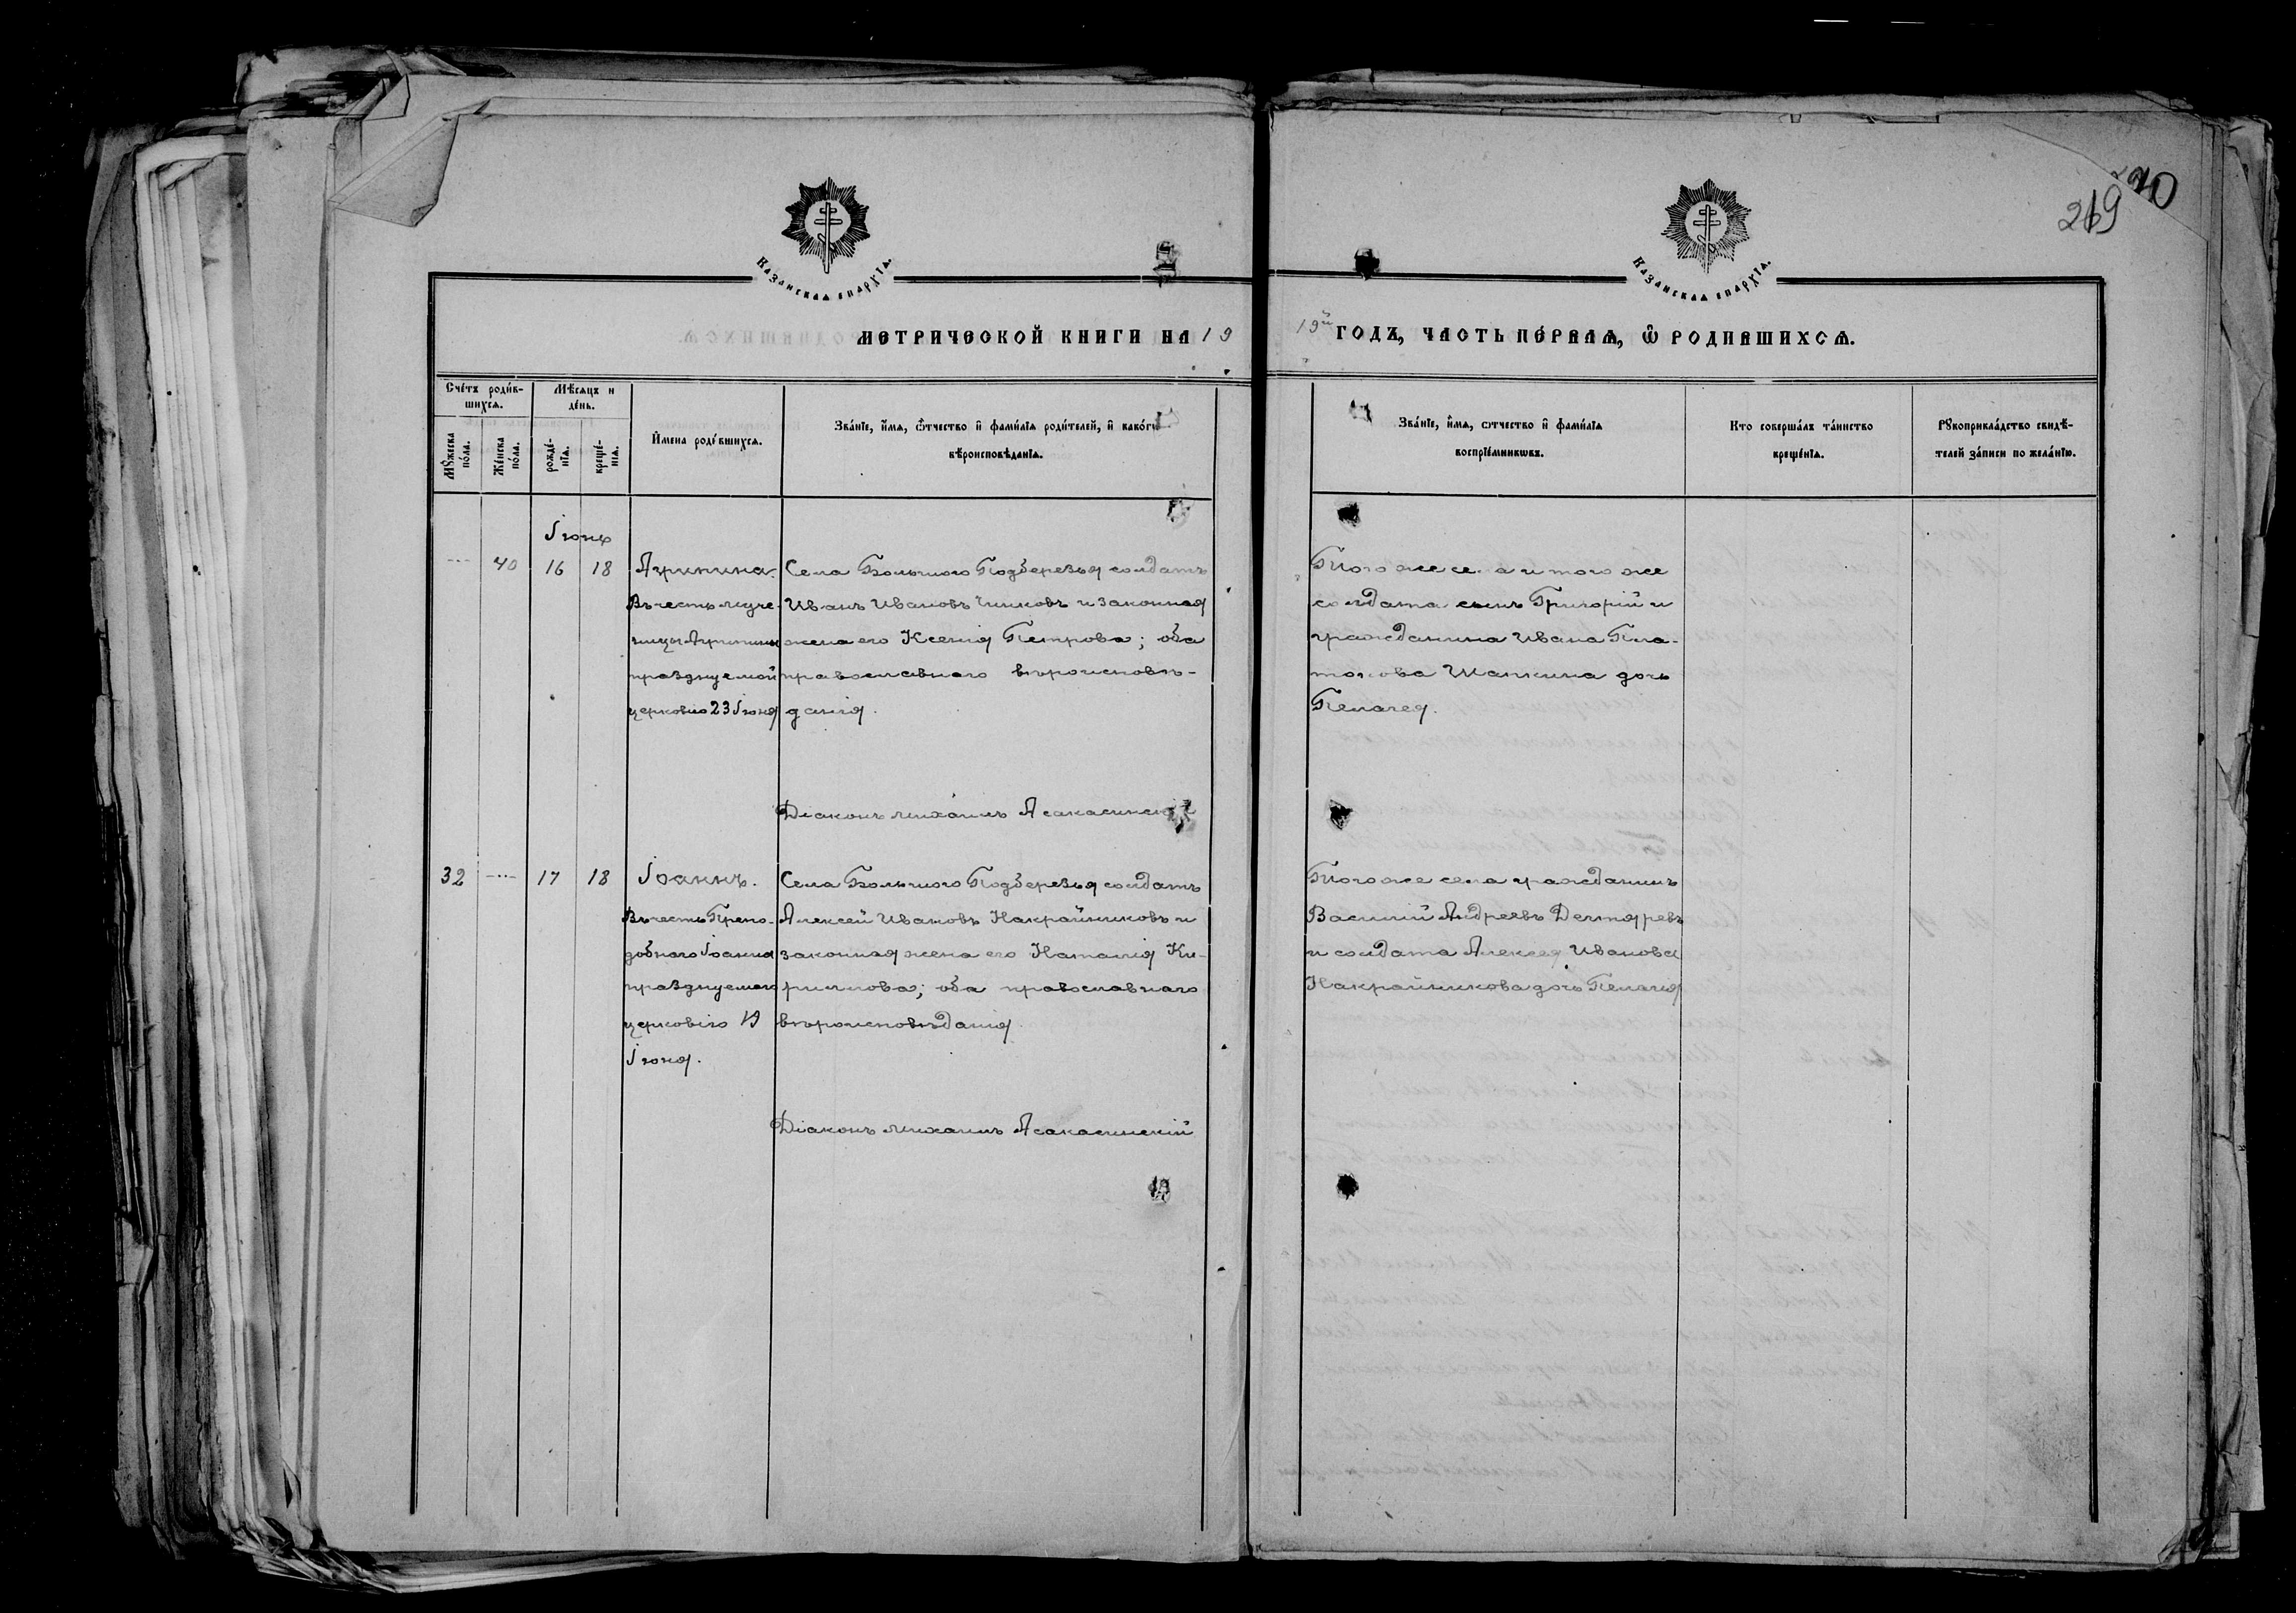 270
269
Казанская епархїа.
Казанская епархїа.
МЕТРИЧЕСКОЙ КНИГИ НА 19
19й ГОДЪ, ЧАСТЬ ПЕ́РВАЯ, Ѿ РОДИВШИХСЯ.
Сче́тъ роди́в-
шихся.
Мѣ́сяцъ и
де́нь.
Мꙋ́жеска
по́ла.
Же́нска
по́ла.
рожде́-
нїя.
креще́-
нїя.
И҆мена роди́вшихся.
Зва́нїе, и҆́мя, ѻ҆́тчество и҆ фами́лїя роди́телей, и҆ како́гѡ
вѣроисповѣ́данїя.
Зва́нїе, и҆́мя, ѻ҆́тчество и҆ фами́лїя
воспрїе́мникѡвъ.
Кто соверша́лъ та́инство
креще́нїя.
Рꙋкоприкла́дство свидѣ́-
телей за́писи по жела́нїю.
Іюнь
40 16 18
Агрипина.
Въ честь муче-
ницы Агрипины
празднуемой
церковію 23 Іюня
Села Большого Подберезья солдатъ
Иванъ Ивановъ Чипковъ и законная
жена его Ксенія Петрова; оба
православнаго вѣроисповѣ-
данія.
Того же села и того же
солдата сынъ Григорій и
гражданина Ивана Пла-
тонова Шапкина дочь
Пелагея.
Діаконъ Михаилъ Асакасинскій
32 17 18
Іоаннъ.
Въ честь Препо-
добнаго Іоанна
празднуемаго
церковію 19
Іюня.
Села Большого Подберезья солдатъ
Алексей Ивановъ Накрайниковъ и
законная жена его Наталія Ки-
рилова; оба православнаго
вѣроисповѣданія.
Того же села гражданинъ
Василій Андреевъ Дегтяревъ
и солдата Алексея Иванова
Накрайникова дочь Пелагія
Діаконъ Михаилъ Асакасинскій